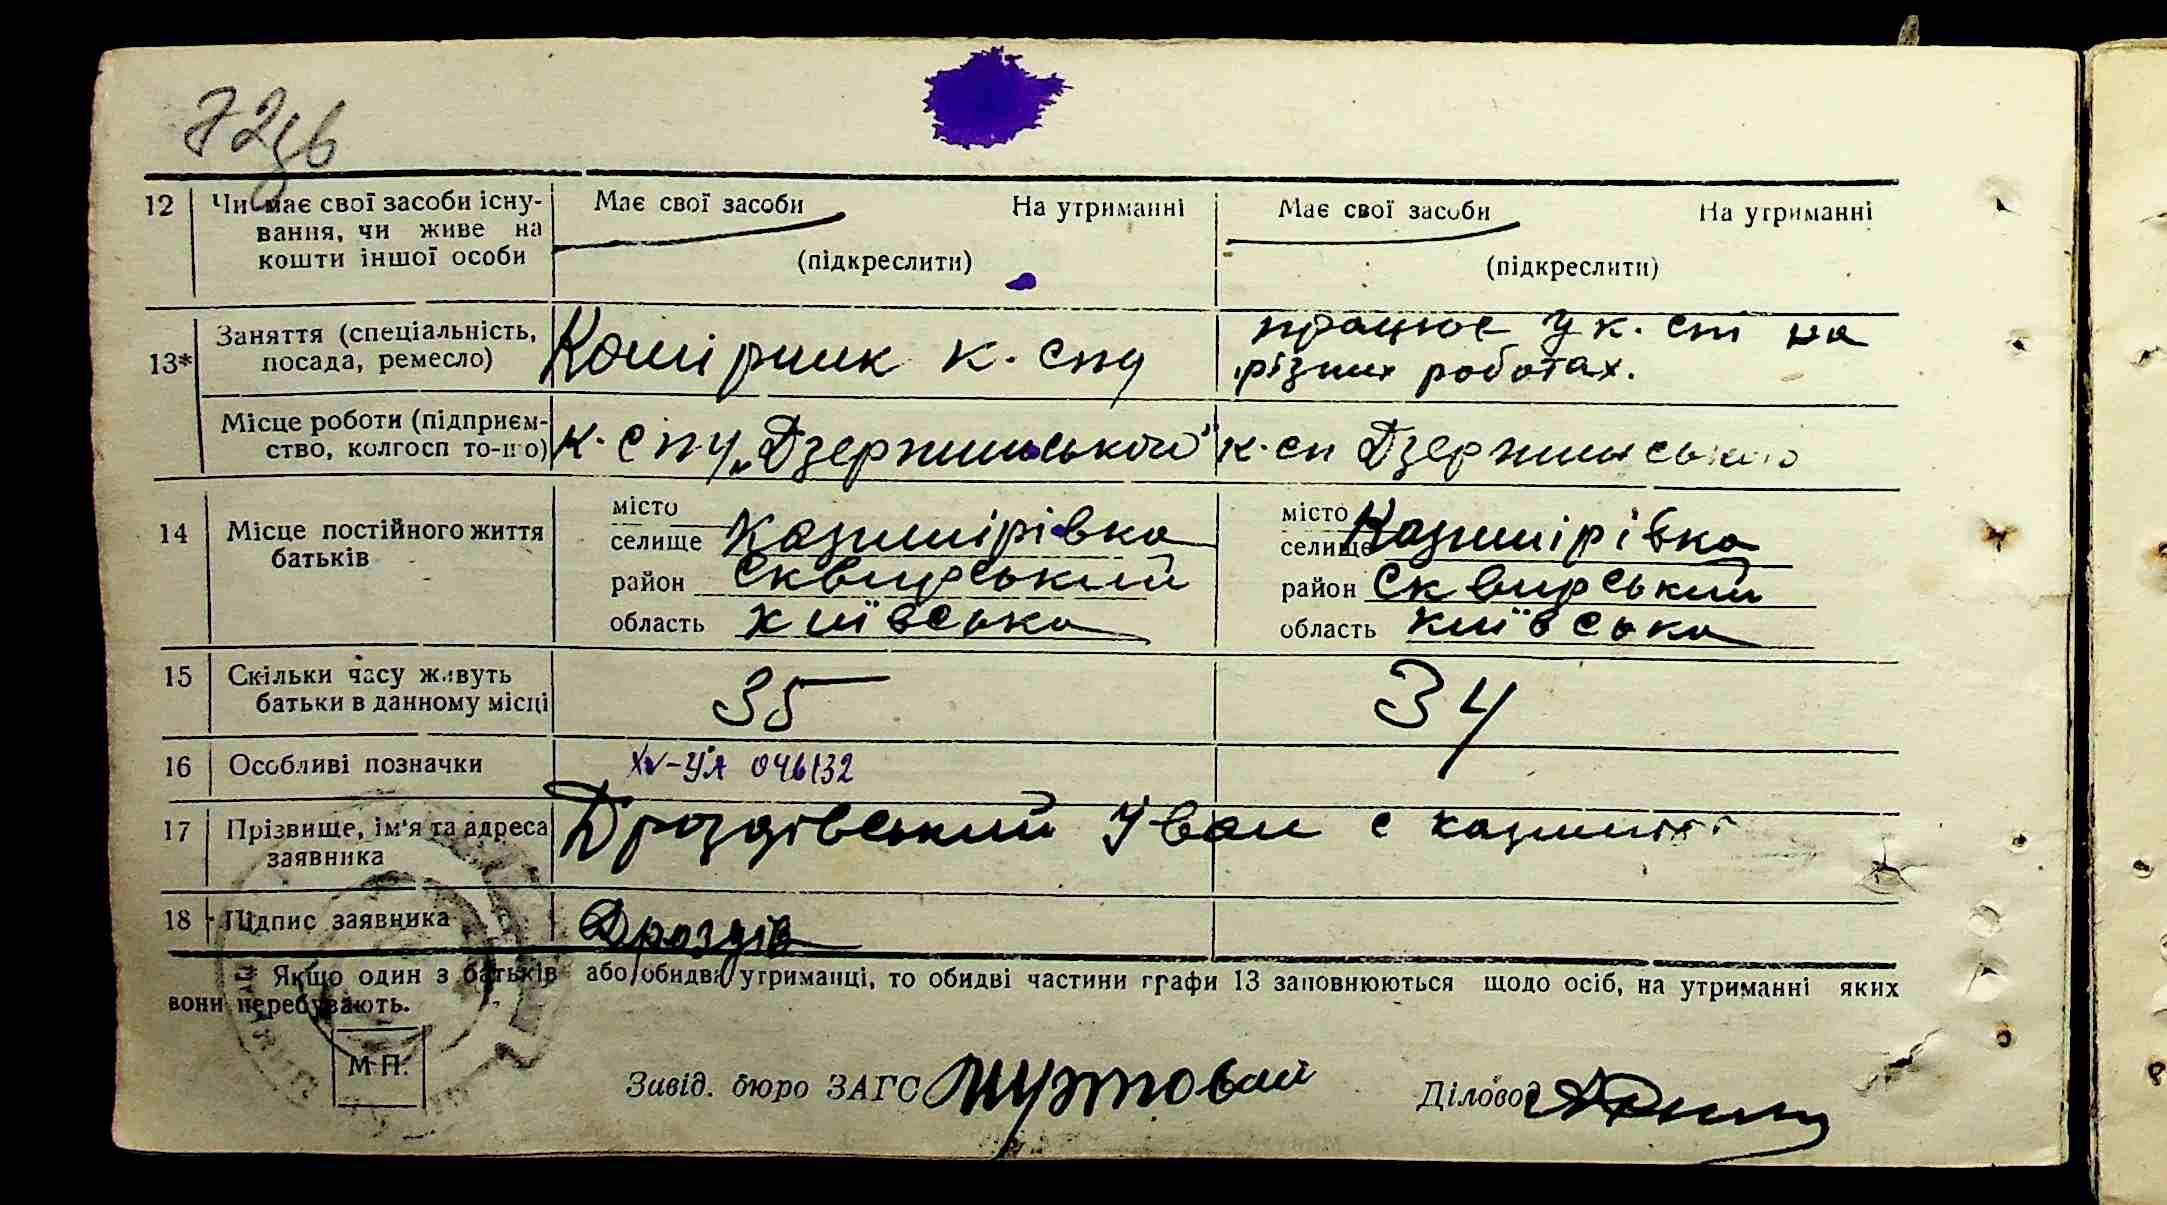 12 Чи має свої засоби існу- Має свої засоби На утриманні Має свої засоби На утриманні
вання, чи живе на
кошти іншої особи (підкреслити) (підкреслити)
13* Заняття (спеціальність, Комірник к. спу працює у к. спі на
посада, ремесло) різних роботах.
Місце роботи (підприєм- к. спу „Дзержинського" к. сп Дзержинського
ство, колгосп то-що)
14 Місце постійного життя місто місто
батьків селище Казимірівка селище Казимірівка
район Сквирський район Сквирський
область Київська область Київська
15 Скільки часу живуть 35 34
батьки в данному місці
16 Особливі позначки XV-УЛ 046132
17 Прізвище, ім'я та адреса Дроздівський Іван с
заявника
18 Підпис заявника Дроздів
* Якщо один з батьків або обидва утриманці, то обидві частини графи 13 заповнюються щодо осіб, на утриманні яких
вони перебувають.
М П.
Завід. бюро ЗАГС Діловод